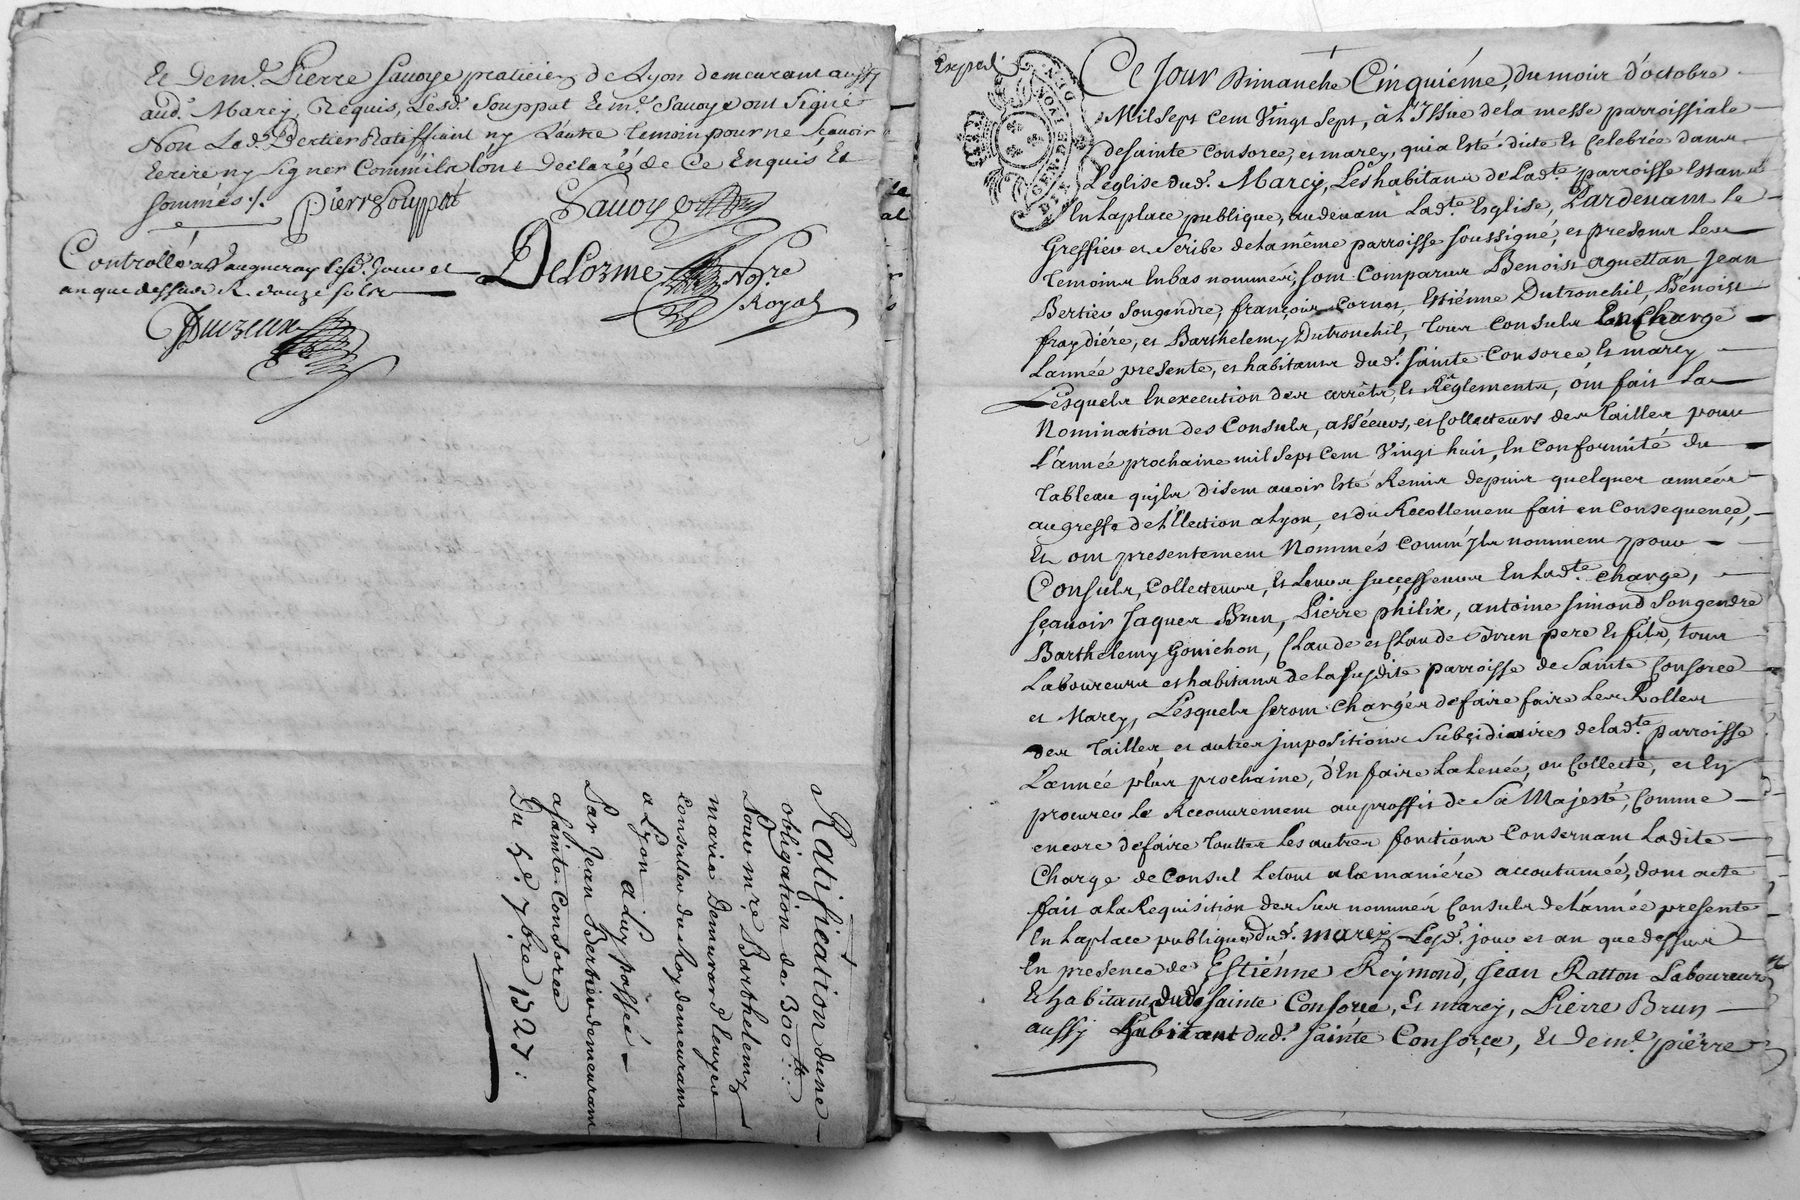 Et de m.e Pierre Savoye praticien de Lyon demeurant aussy
aud. Marcy, Requis, Lesd. Souppat Et m.e Savoye ont Signé
Non Lad. Bertier Ratiffiant ny L'autre temoin pour ne Sçavoir
Ecrire ny Signer Comm'ils l'ont declarés de Ce Enquis Et
Sommés /.
Pierre Souppat
Savoye
Controllé a Vaugneray lesd. Jour et
an que dessus R. douze sols
DeLorme No.re
Royal
Ratification d'une
obligation de 300.tt
Pour m.re Barthelemy
maria Demurard ecuyer
conseiller du Roy demeurant
a Lyon
a Luy passée
Par Jean Bertier demeurant
a Sainte Consorce
Du 5.e 7bre 1727.
Exped.
GEN. DE LYON
Ce Jour Dimanche Cinquiéme, du mois d'octobre
Mil Sept Cent Vingt Sept, à L'Issüe de la messe parroissiale
de Sainte Consorce, et marcy, qui a Esté dite Et Celebrée dans
L'eglise dud. Marcy, Les habitans de Lad.te parroisse Estant
En La place publique, au devant Lad.te Esglise, Pardevant Le
Greffier et Scribe de la même parroisse soussigné, et presens Les
Temoins En bas nommés; sont Comparus Benoist aguettan Jean
Bertier Son gendre, françois Cornet, Estiénne Dutronchil, Bénoist
fraydiére, et Barthelemy Dutronchil, Tous Consuls En Charge
L'année presente, et habitans dud. Sainte Consorce Et marcy
Lesquels En execution des arrêts, Et Réglements, ont fait La
Nomination des Consuls, asséeurs, et Collecteurs des Tailles pour
L'année prochaine mil Sept Cent Vingt huit, En Conformité du
Tableau qu'jls disent avoir Esté Remis depuis quelques années
au greffe de L'Election a Lyon, et du Recollement fait en Consequence,
Et ont presentement Nommés Comm'jls nomment pour
Consuls, Collecteurs, Et Leurs Successeurs En Lad.te Charge,
sçavoir Jaques Brun, Pierre philix, antoine Simond Son gendre
Barthelemy Gonichon, Claude et Claude Brun pere Et fils, tous
Laboureurs et habitans de la susdite parroisse de Sainte Consorce
et Marcy, Lesquels seront Chargés de faire faire Les Rolles
des Tailles, et autres jmpositions Subcidiaires de lad.te parroisse
L'année plus prochaine, d'En faire La Levée, ou Collecte, et En
procurer Le Recouvrement au proffit de Sa Majesté, Comme
encore de faire Touttes Les autres fonctions Consernant Ladite
Charge de Consul Le tout a la maniére accoutumée, dont acte
fait a La Requisition des Sus nommés Consuls de L'année presente
En La place publique dud. marcy Lesd. jour et an que dessus
En presence de Estiénne Reymond, Jean Ratton Laboureurs
Et habitans dud. Sainte Consorce, Et marcy, Pierre Brun
aussy habitant dud. Sainte Consorce, Et de m.e pierre